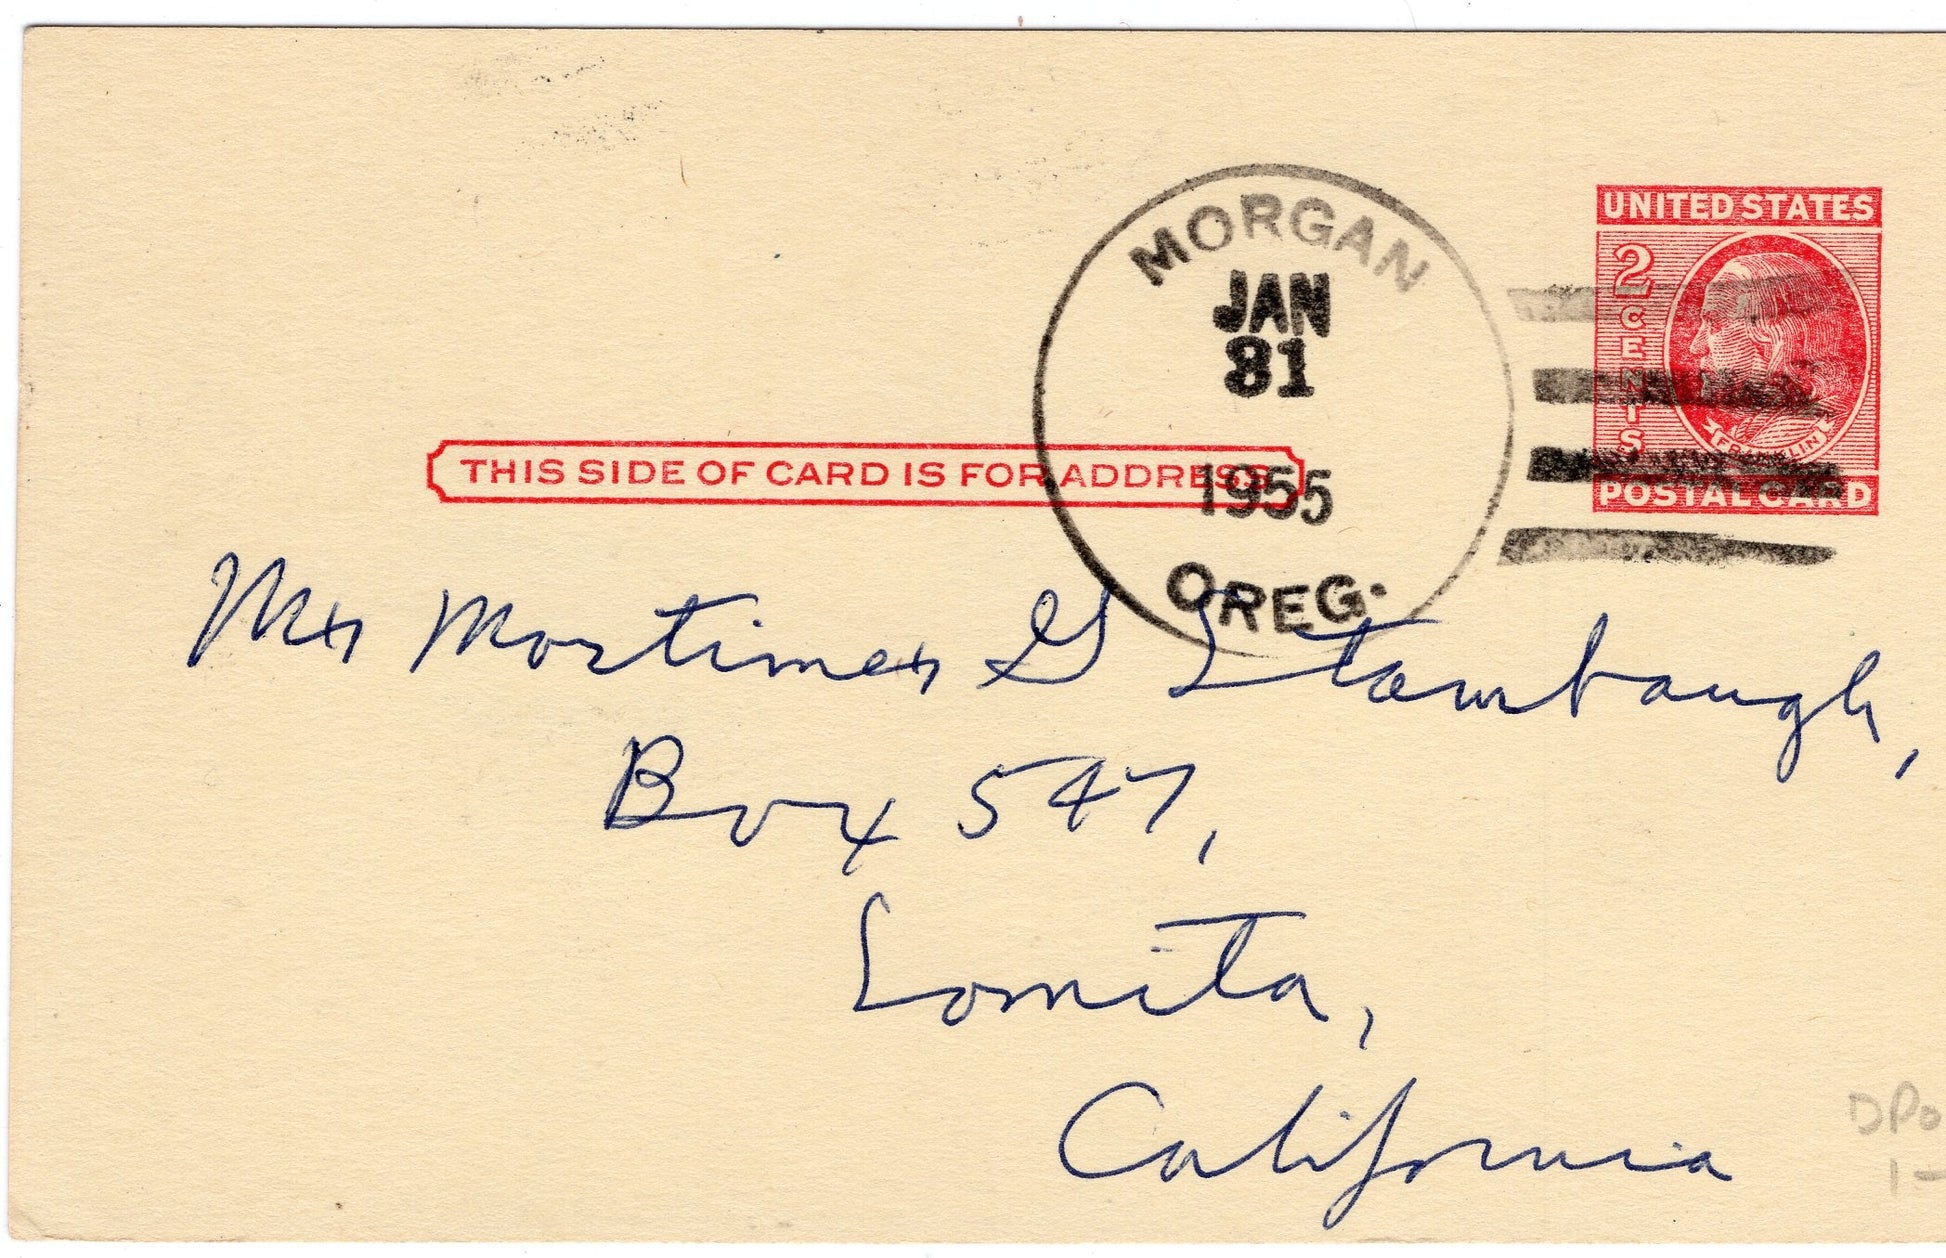 UNITED STATES
2 CENTS
FRANKLIN
POSTAL CARD
MORGAN
JAN
31
1955
OREG.
THIS SIDE OF CARD IS FOR ADDRESS
Mr Mortimer G Stambaugh,
Box 547,
Lomita,
California
DPO
1-